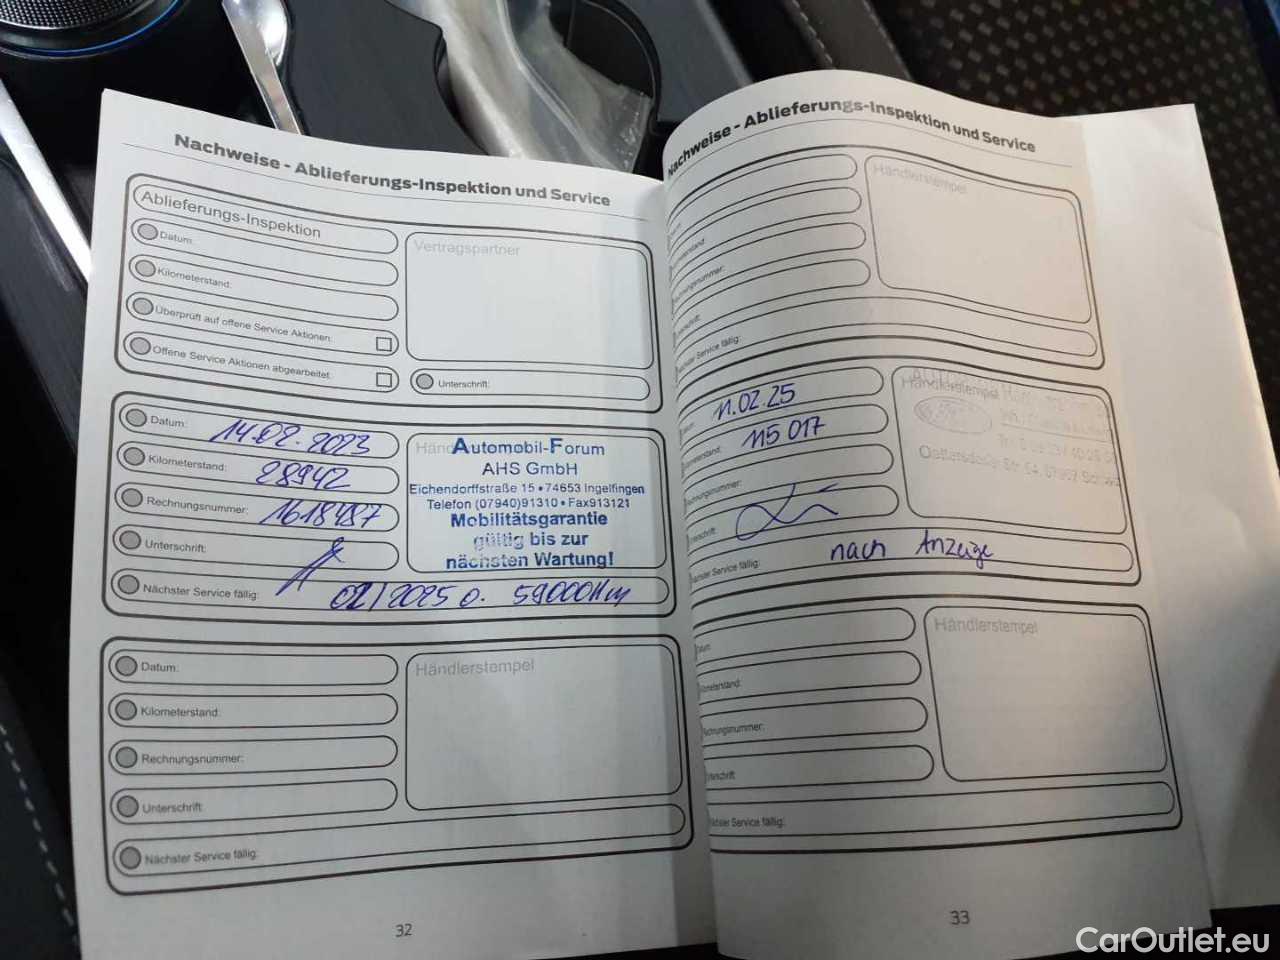 Nachweise - Ablieferungs-Inspektion und Service
Ablieferungs-Inspektion
Datum:
Kilometerstand:
Überprüft auf offene Service Aktionen:
Offene Service Aktionen abgearbeitet:
Vertragspartner
Unterschrift:
Datum: 14.02.2023
Kilometerstand: 28942
Rechnungsnummer: 1618487
Unterschrift:
Nächster Service fällig: 02/2025 o. 59000Km
Automobil-Forum
AHS GmbH
Eichendorffstraße 15 • 74653 Ingelfingen
Telefon (07940)91310 • Fax913121
Mobilitätsgarantie
gültig bis zur
nächsten Wartung!
Datum:
Kilometerstand:
Rechnungsnummer:
Unterschrift:
Nächster Service fällig:
Händlerstempel
32
Nachweise - Ablieferungs-Inspektion und Service
Händlerstempel
Service fällig:
11.02.25
115 017
Händlerstempel
Nächster Service fällig: nach Anzeige
Händlerstempel
Nächster Service fällig:
33
CarOutlet.eu